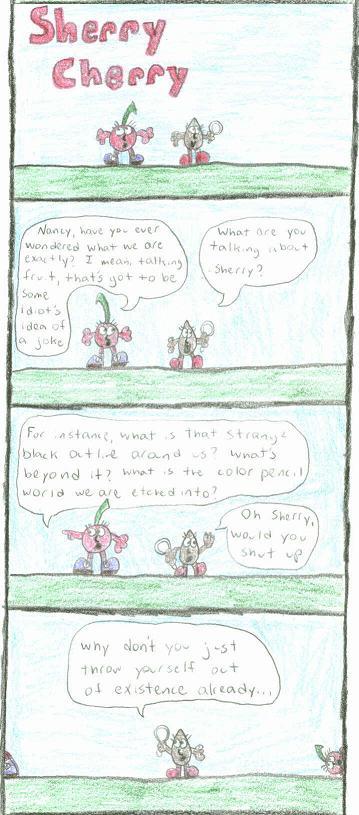 Sherry
Cherry
Nancy, have you ever
wondered what we are
exactly? I mean, talking
fruit, that's got to be
some
idiot's
idea of
a joke
What are you
talking about
Sherry?
For instance, what is that strange
black outline around us? What's
beyond it? What is the color pencil
world we are etched into?
Oh Sherry,
would you
shut up
why don't you just
throw yourself out
of existence already...